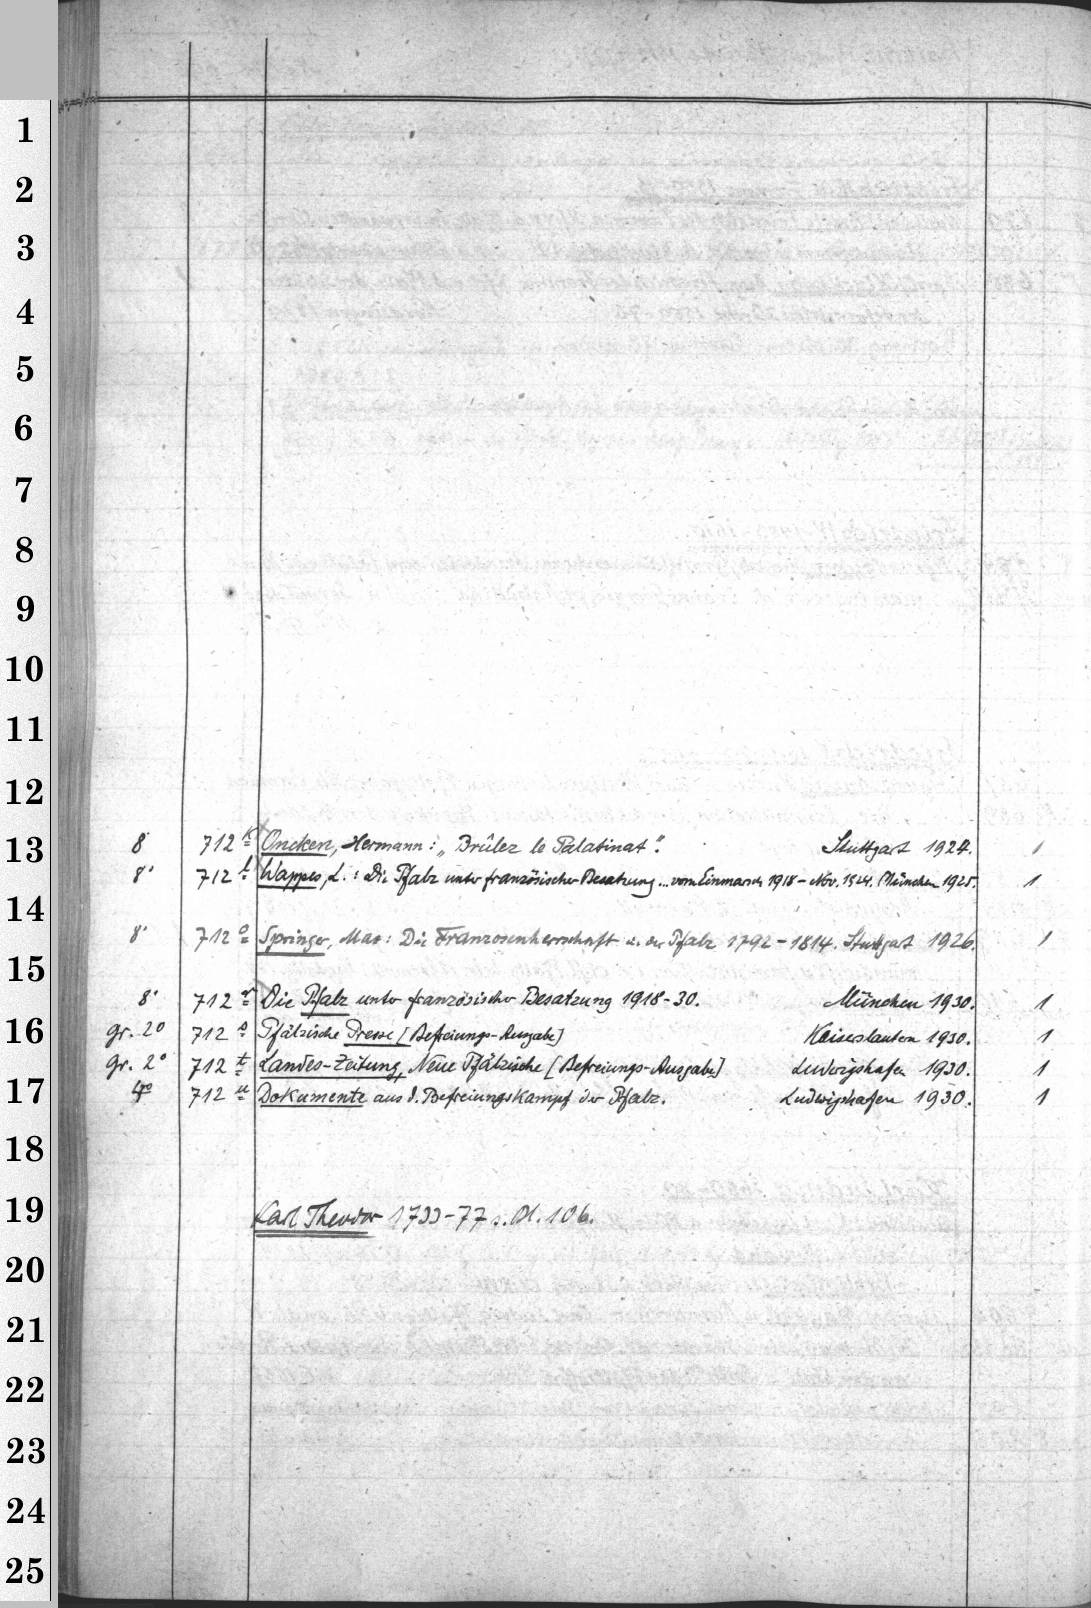 1
2
3
4
5
6
7
8
9
10
11
12
13
8° 712 k Oncken, Hermann: „Brûlez le Palatinat". Stuttgart 1924. 1
8° 712 l Wappes, L.: Die Pfalz unter französischer Besatzung... vom Einmarsch 1918 – Nov. 1924. München 1925. 1
14
8° 712 o Springer, Max: Die Franzosenherrschaft i. der Pfalz 1792–1814. Stuttgart 1926. 1
15
8° 712 r Die Pfalz unter französischer Besatzung 1918-30. München 1930. 1
16
gr. 2° 712 s Pfälzische Presse [Befreiungs-Ausgabe] Kaiserslautern 1930. 1
gr. 2° 712 t Landes-Zeitung, Neue Pfälzische [Befreiungs-Ausgabe] Ludwigshafen 1930. 1
17
4° 712 u Dokumente aus d. Befreiungskampf der Pfalz. Ludwigshafen 1930. 1
18
19
Karl Theodor 1733-77 s. Bl. 106.
20
21
22
23
24
25